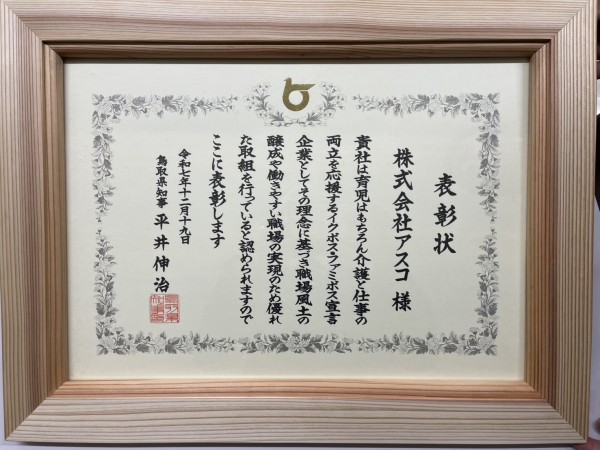 表彰状
株式会社アスコ 様
貴社は育児はもちろん介護と仕事の
両立を応援するイクボス・ファミボス宣言
企業としてその理念に基づき職場風土の
醸成や働きやすい職場の実現のため優れ
た取組を行っていると認められますので
ここに表彰します
令和七年十二月十九日
鳥取県知事 平井伸治